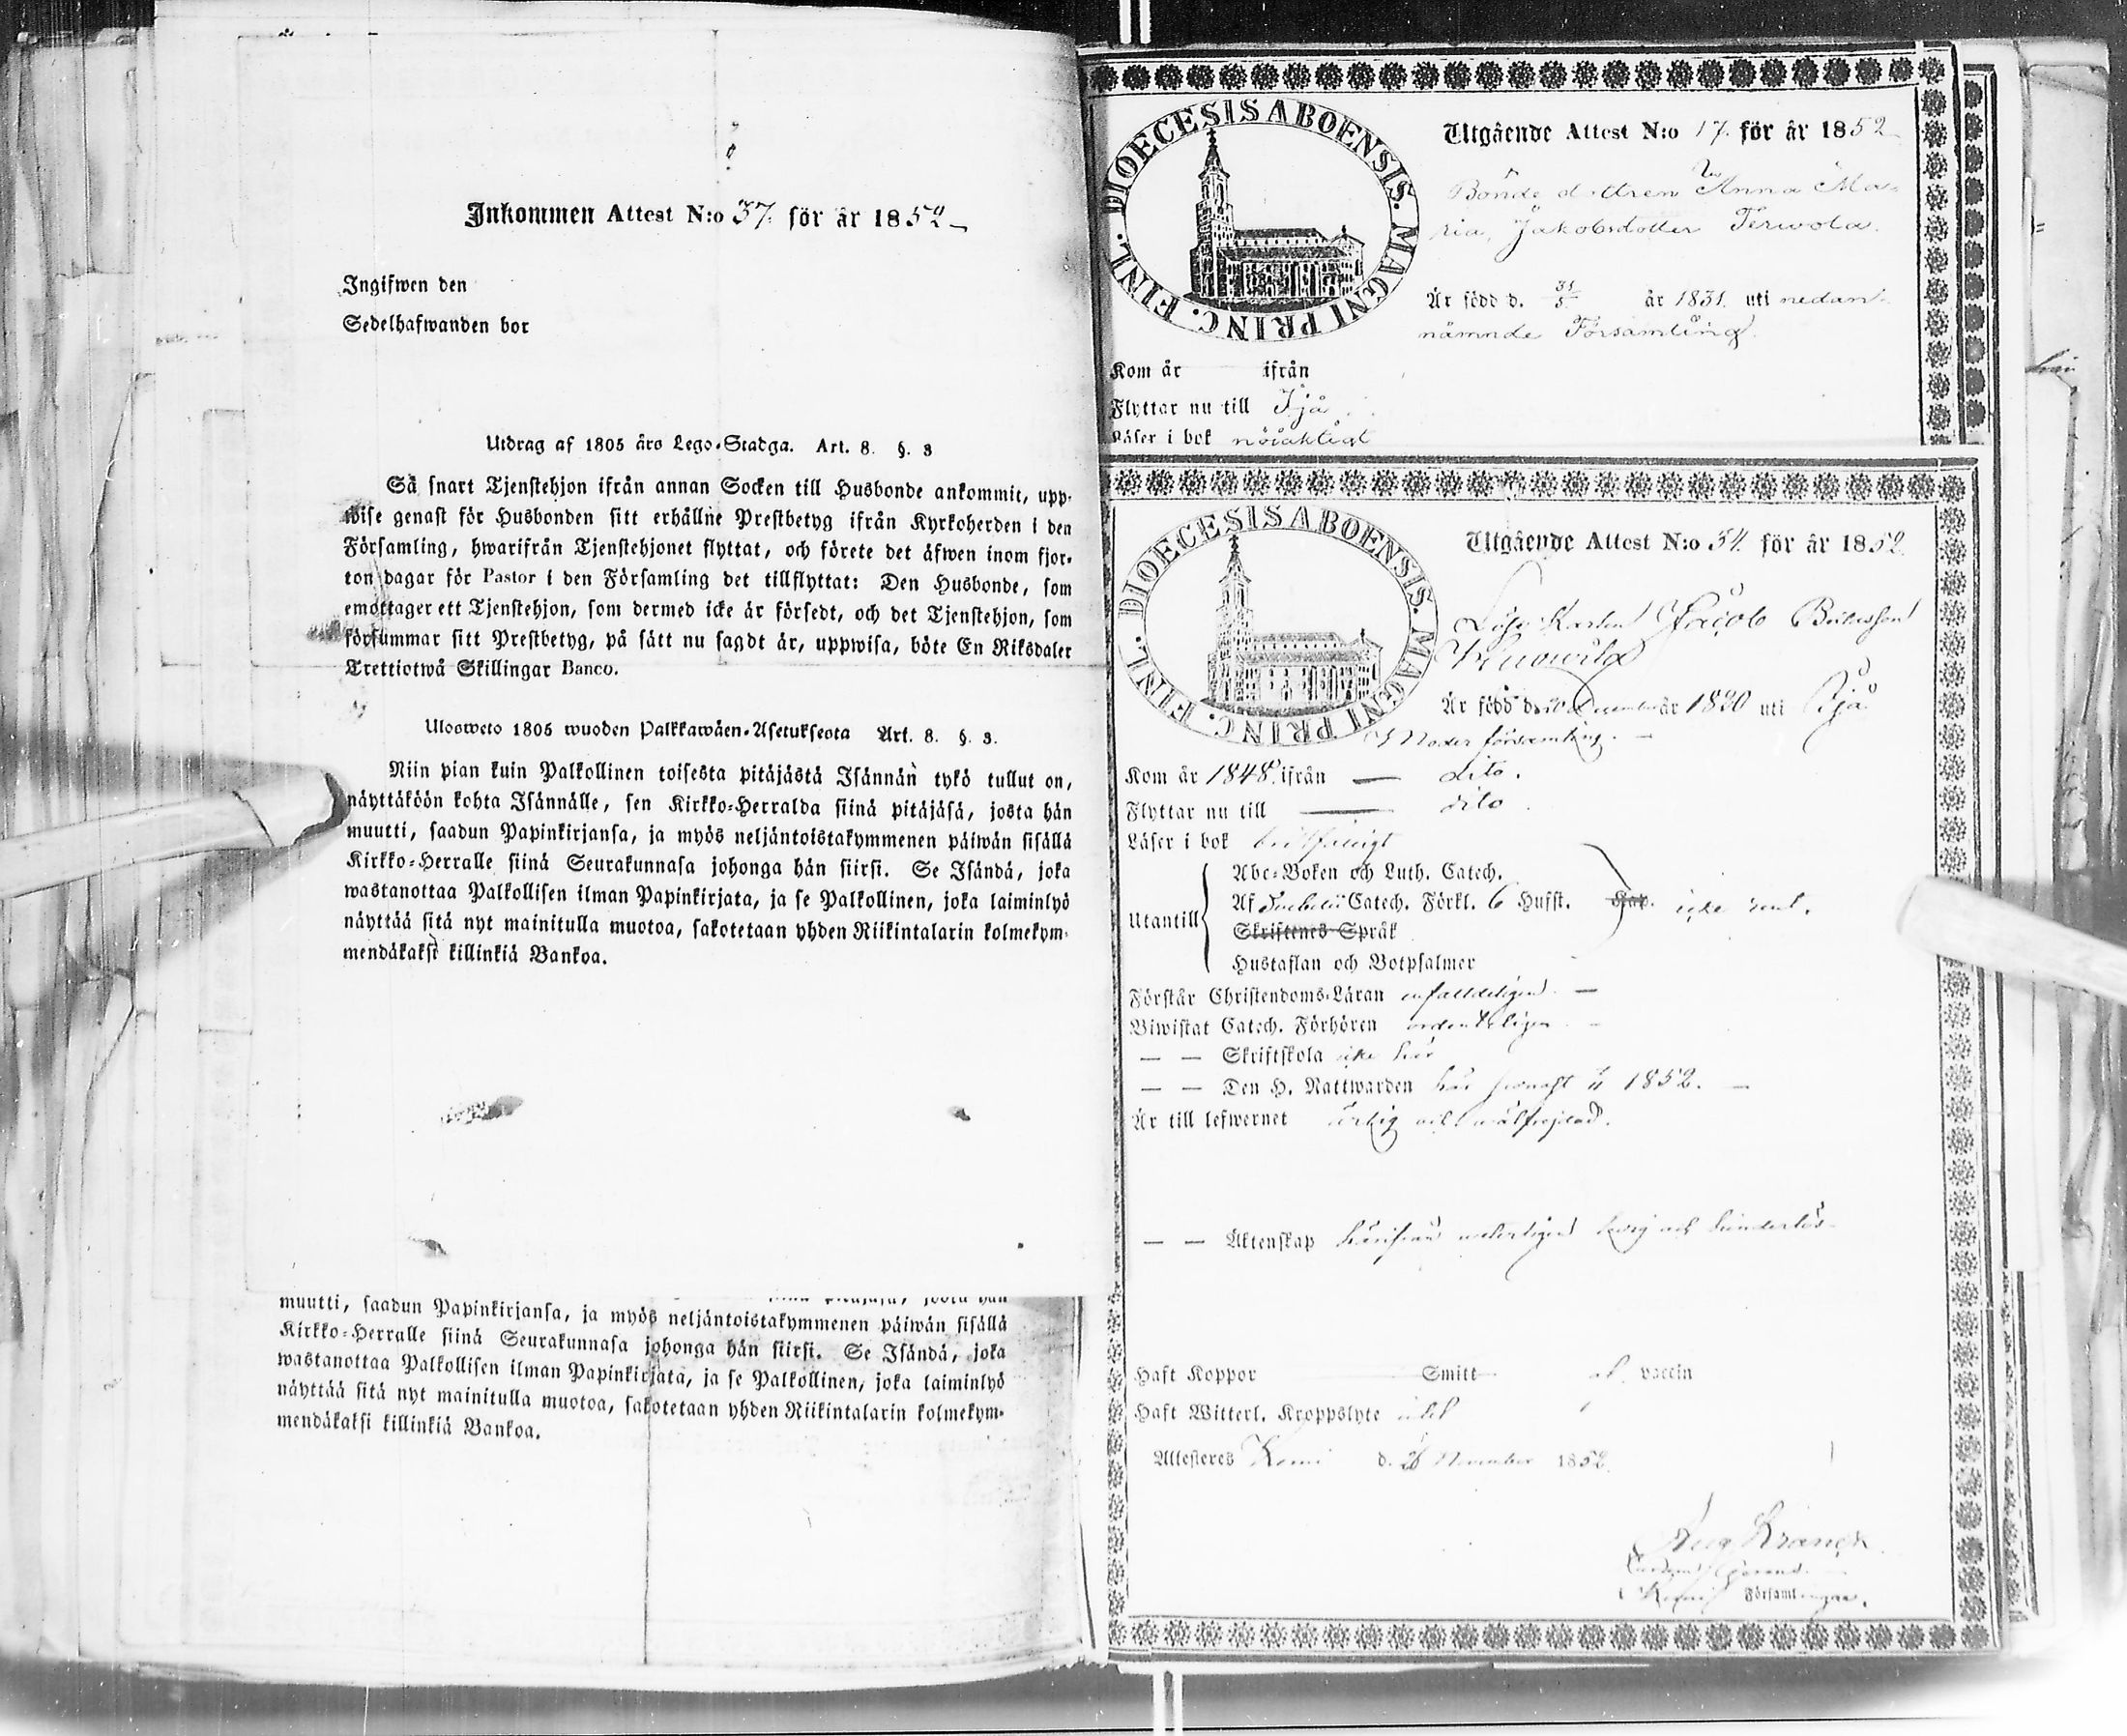 Inkommen Attest N:o 37. för år 1852
Ingifwen den
Sedelhafwanden bor
Utdrag af 1805 års Lego-Stadga. Art. 8. §. 3
Så snart Tjenstehjon ifrån annan Socken till Husbonde ankommit, upp-
wise genast för Husbonden sitt erhållne Prestbetyg ifrån Kyrkoherden i den
Församling, hwarifrån Tjenstehjonet flyttat, och förete det äfwen inom fjor-
ton dagar för Pastor i den Församling det tillflyttat: Den Husbonde, som
emottager ett Tjenstehjon, som dermed icke är försedt, och det Tjenstehjon, som
försummar sitt Prestbetyg, på sätt nu sagdt är, uppwisa, böte En Riksdaler
Trettiotwå Skillingar Banco.
Ulosweto 1805 wuoden Palkkawäen-Asetuksesta Art. 8. §. 3.
Niin pian kuin Palkollinen toisesta pitäjästä Isännän tykö tullut on,
näyttäköön kohta Isännälle, sen Kirkko-Herralda siinä pitäjäsä, josta hän
muutti, saadun Papinkirjansa, ja myös neljäntoistakymmenen päiwän sisällä
Kirkko-Herralle siinä Seurakunnasa johonga hän siirsi. Se Isändä, joka
wastanottaa Palkollisen ilman Papinkirjata, ja se Palkollinen, joka laiminlyö
näyttää sitä nyt mainitulla muotoa, sakotetaan yhden Riikintalarin kolmekym-
mendäkaksi killinkiä Bankoa.
muutti, saadun Papinkirjansa, ja myös neljäntoistakymmenen päiwän sisällä
Kirkko-Herralle siinä Seurakunnasa johonga hän siirsi. Se Isändä, joka
wastanottaa Palkollisen ilman Papinkirjata, ja se Palkollinen, joka laiminlyö
näyttää sitä nyt mainitulla muotoa, sakotetaan yhden Riikintalarin kolmekym-
mendäkaksi killinkiä Bankoa.
DIOECESIS ABOENSIS. MAGNI PRINC. FINL.
Utgående Attest N:o 17. för år 1852
Bonde dottren Anna Ma-
ria, Jakobsdotter Terwola.
Är född d. 31/5 år 1831. uti nedan-
nämnde Församling.
Kom år ifrån
Flyttar nu till Ijå
Läser i bok nöjaktigt
DIOECESIS ABOENSIS. MAGNI PRINC. FINL.
Utgående Attest N:o 54. för år 1852
Löse Karlen Jacob
Är född d. December år 1820 uti Ijå
Moder församling.
Kom år 1848. ifrån — dito.
Flyttar nu till — dito.
Läser i bok
Abc-Boken och Luth. Catech.
Utantill Af Svebelii Catech. Förkl. 6 Hufst. Kap. icke rent.
Skriftenes Språk
Hustaflan och Botpsalmer
Förstår Christendoms-Läran enfaldeligen. —
Biwistat Catech. Förhören ordenteligen —
— — Skriftskola icke här
— — Den H. Nattwarden här senast 1852. —
Är till lefwernet ärlig och wälfrejdad.
— — Äktenskap härifrån weterligen ledig och hinderlös.
Haft Koppor Smitt vaccin
Haft Witterl. Kroppslyte
Attesteres Kemi d. 26 November 1852.
Aug Kranck
Kemi Församlingar.